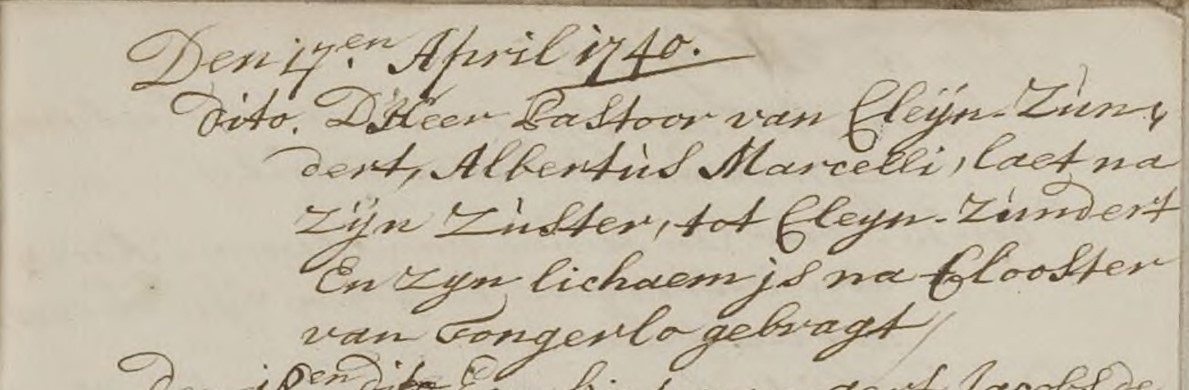 Den 17.en April 1740.
Dito. D'Heer Pastoor van Cleÿn-Zùn-
dert, Albertùs Marcelli, laet na
zÿn Zùster, tot Cleyn-Zùndert
En zyn lichaem js na Clooster
van Tongerlo gebragt/
Den 18en dito